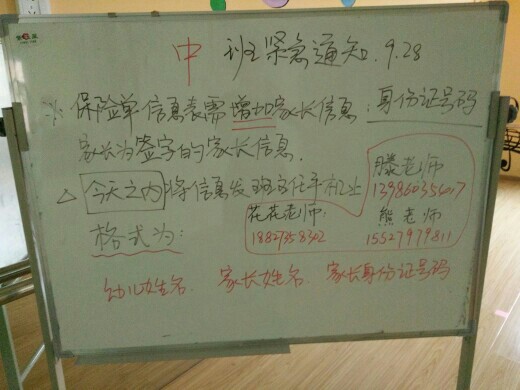 中 班紧急通知.9.28
保险单信息表需增加家长信息:身份证号码
家长为签字的家长信息.
△ 今天之内 将信息发班主任手机上
滕老师
13986035
花花老师:
熊老师
18827358302
15527979811
格式为:
幼儿姓名 家长姓名 家长身份证号码